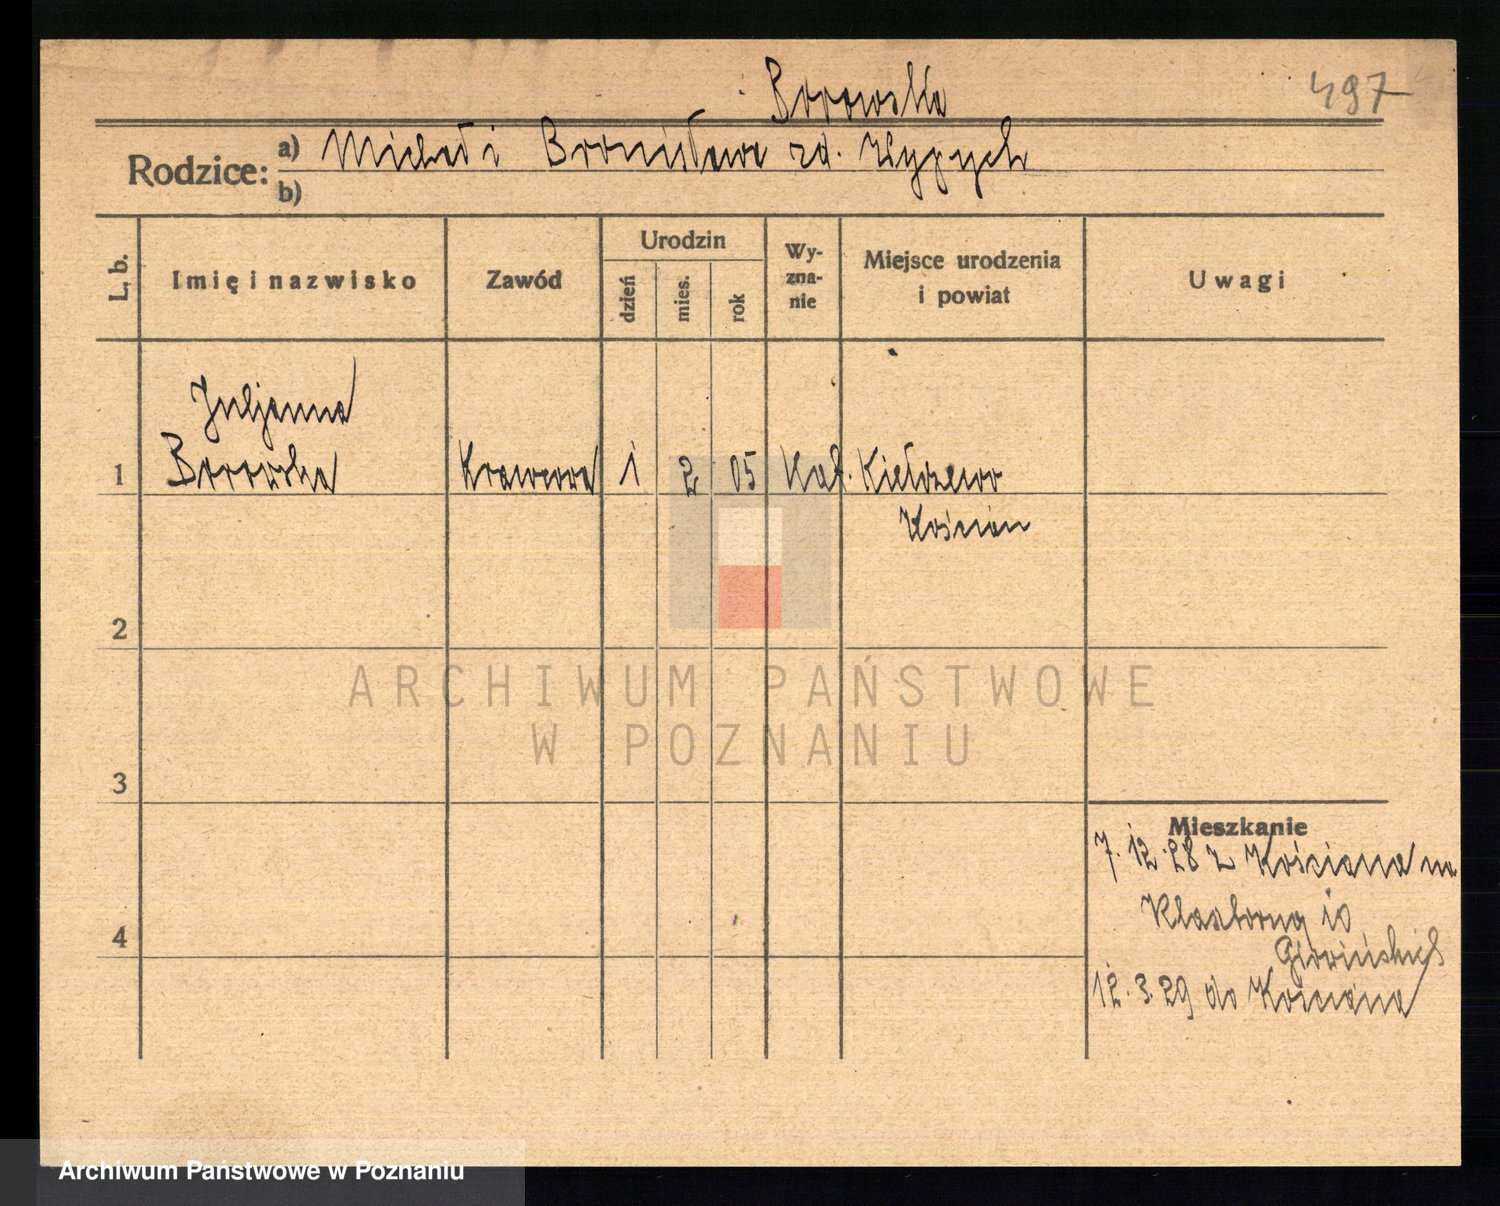 Borowska
497
Rodzice: a) Michał i Bronisława zd. Wypych
b)
L. b.
Imię i nazwisko
Zawód
Urodzin
dzień
mies.
rok
Wy-
zna-
nie
Miejsce urodzenia
i powiat
Uwagi
Juljanna
1 Borowska Krawcowa 1 2 05 Kat. Kiełczewo
Kościan
2
3
4
Mieszkanie
7.12.28 z Kościana na
Klasztorną 10
12.3.29 do Kościana
ARCHIWUM PAŃSTWOWE
W POZNANIU
Archiwum Państwowe w Poznaniu